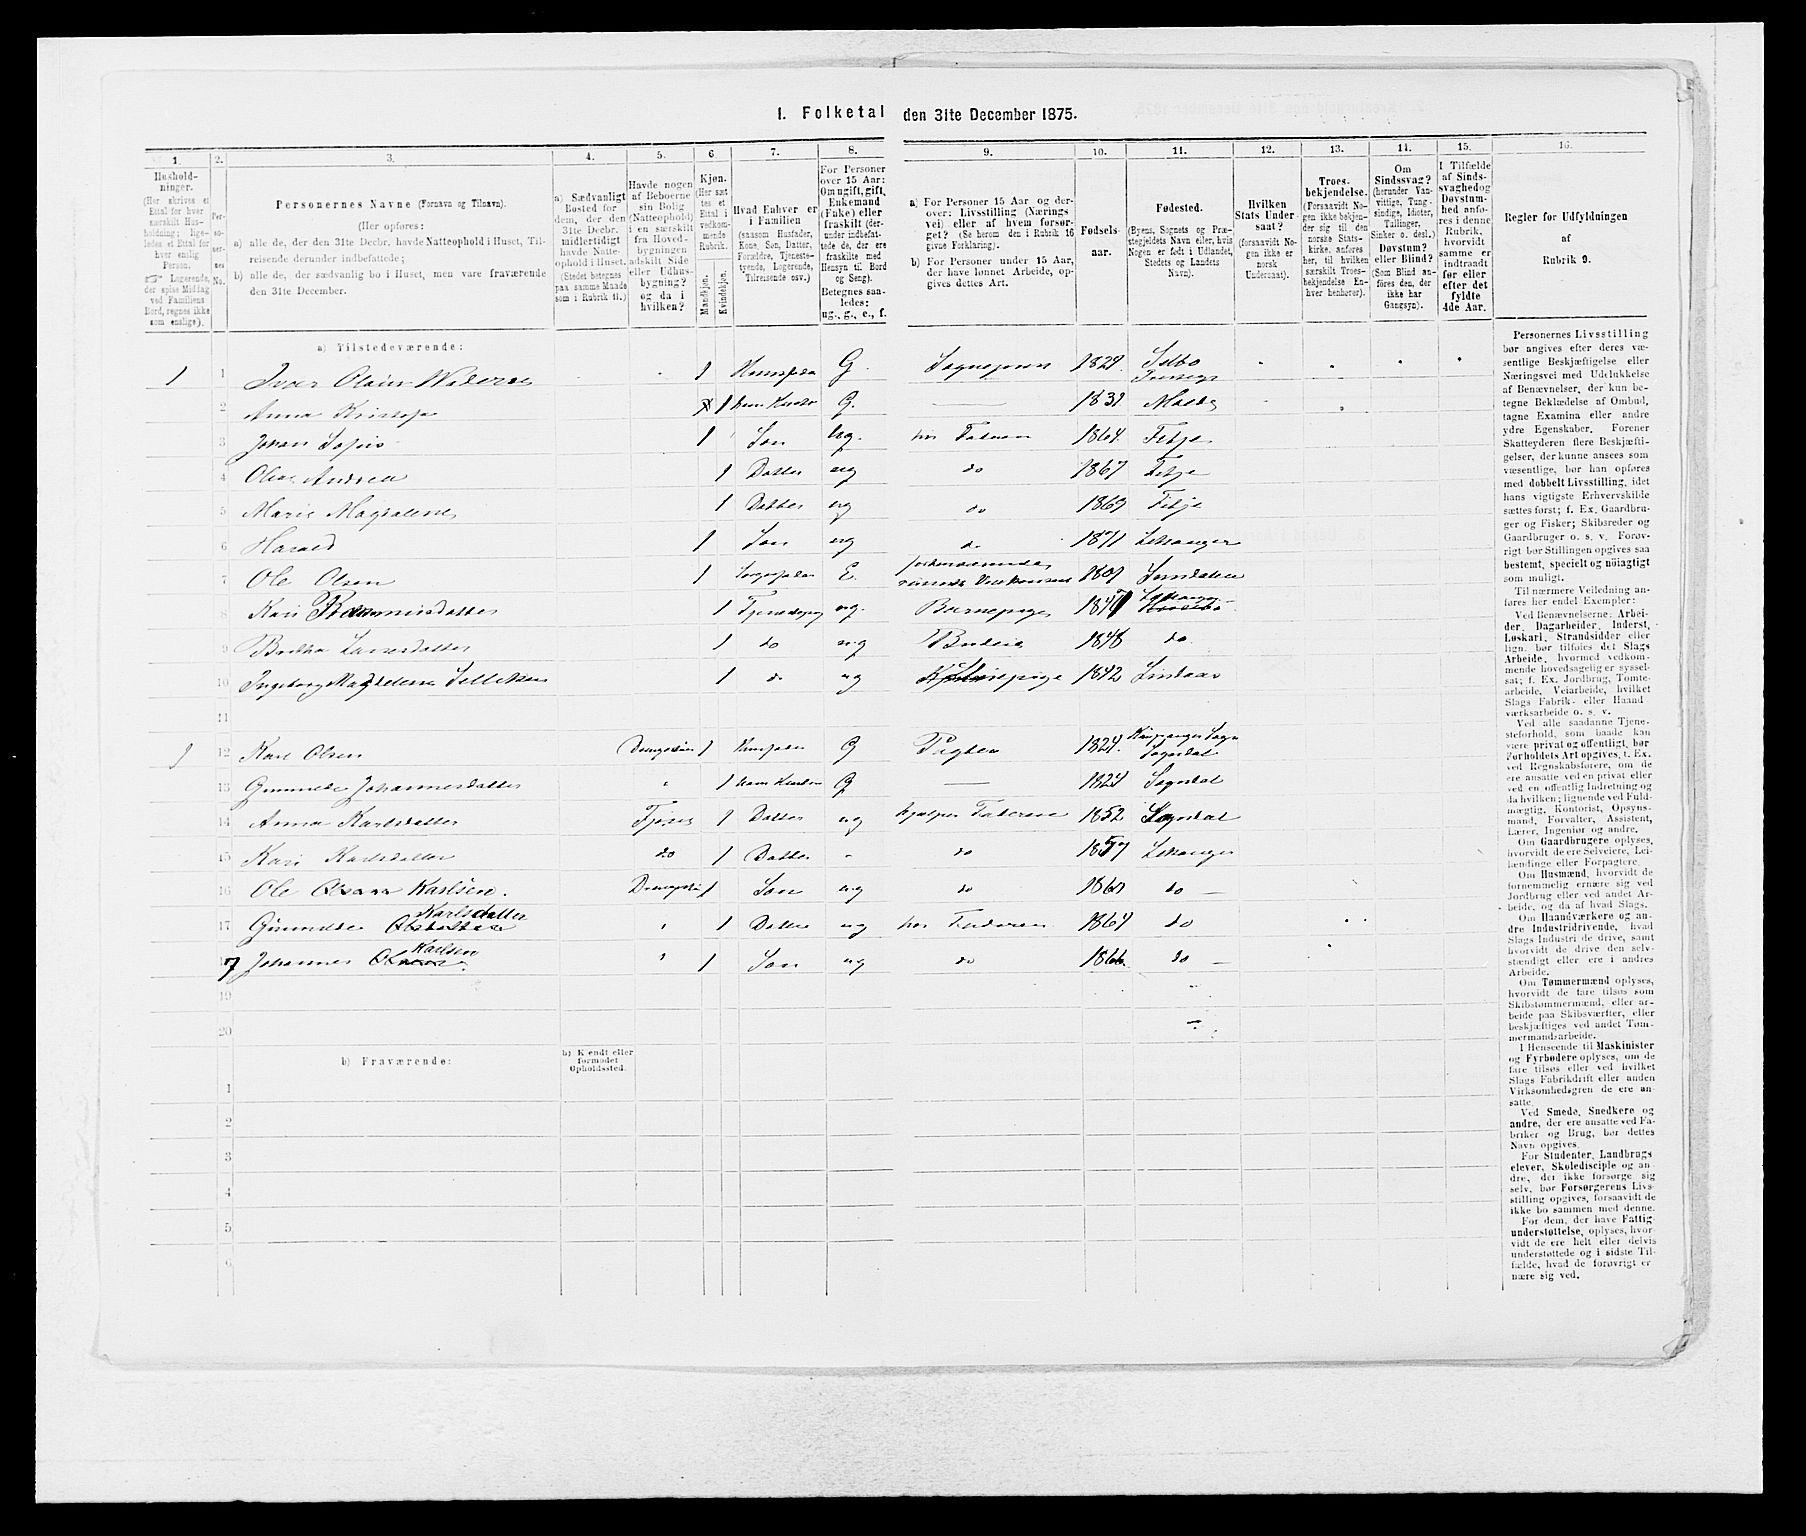 I. Folketal den 31te December 1875.
1. 2. 3. 4. 5. 6. 7. 8. 9. 10. 11. 12. 13. 14. 15. 16.
Hushold-
ninger.
(Her skrives et
Ettal for hver
særskilt Hus-
holdning; lige-
ledes et Ettal for
hver enslig
Person.
☞ Logerende,
der spise Middag
ved Familiens
Bord, regnes ikke
som enslige).
Per-
so-
ner-
nes
No.
Personernes Navne (Fornavn og Tilnavn).
(Her opføres:
a) alle de, der den 31te Decbr. havde Natteophold i Huset, Til-
reisende derunder indbefattede;
b) alle de, der sædvanlig bo i Huset, men vare fraværende
den 31te December.
a) Sædvanligt
Bosted for
dem, der den
31te Decbr.
midlertidigt
havde Natte-
ophold i Huset.
(Stedet betegnes
paa samme Maade
som i Rubrik 11.)
Havde nogen
af Beboerne
sin Bolig
(Natteophold)
i en særskilt
fra Hoved-
bygningen
adskilt Side
eller Udhus-
bygning?
og da i
hvilken?
Kjøn.
(Her sæt-
tes et
Ettal i
vedkom-
mende
Rubrik.
Mandkjøn.
Kvindekjøn.
Hvad Enhver er
i Familien
(saasom Husfader,
Kone, Søn, Datter,
Forældre, Tjeneste-
tyende, Logerende,
Tilreisende osv.)
For Personer
over 15 Aar:
Om ugift, gift,
Enkemand
(Enke) eller
fraskilt (der-
under indbefat-
tede de, der ere
fraskilte med
Hensyn til Bord
og Seng).
Betegnes saa-
ledes:
ug., g., e., f.
a) For Personer 15 Aar og der-
over: Livsstilling (Nærings
vei) eller af hvem forsør-
get? (Se herom den i Rubrik 16
givne Forklaring).
b) For Personer under 15 Aar,
der have lønnet Arbeide, op-
gives dettes Art.
Fødsels-
aar.
Fødested.
(Byens, Sognets og Præ-
stegjeldets Navn eller, hvis
Nogen er født i Udlandet,
Stedets og Landets
Navn).
Hvilken
Stats Under-
saat?
(forsaavidt No-
gen ikke er
norsk
Undersaat).
Troes-
bekjendelse.
(Forsaavidt No-
gen ikke bekjen-
der sig til den
norske Stats-
kirke, anføres
her, til hvilken
særskilt Troes-
bekjendelse En-
hver henhører).
Om
Sindssvag?
(herunder Van-
vittige, Tung-
sindige, Idioter,
Tullinger,
Sinker o. desl.)
Døvstum?
eller Blind?
(Som Blind an-
føres den, der
ikke har
Gangsyn).
I Tilfælde
af Sinds-
svaghed og
Døvstum-
hed anfø-
res i denne
Rubrik,
hvorvidt
samme er
indtraadt
før eller
efter det
fyldte
4de Aar.
Regler for Udfyldningen
af
Rubrik 9.
a) Tilstedeværende:
1 1 1 G. 1829 Selbo
2 Anna 1 G. 1831 Molde
3 Johan 1 Søn ug. hos Faderen 1864 Fetje
4 Andrea 1 Datter ug do 1867 Fetje
5 Marie Magdalene 1 Datter ug do 1869 Fetje
6 Harald 1 Søn ug do 1871 Lekanger
7 Ole Olsen 1 E. 1801
8 Kari 1 ug. Barnepige
9 Larsdatter 1 do ug Budeie 1848 do
10 Ingeborg Magdalena 1 do ug 1842 Lindaas
11
1 12 Karl Olsen 1 Husfader G 1824 Sogndal
13 Johannesdatter 1 G 1824 Sogndal
14 Anna Karlsdatter 1 Datter ug hjælper Faderen 1852 Sogndal
15 Kari Karlsdatter do 1 Datter do 1857 Lekanger
16 Ole Karlsen. 1 Søn ug do 1861 do
17 Karlsdatter 1 Datter ug hos Faderen 1864 do
Johannes Karlsen 1 Søn ug do 1866 do
19
20
b) Fraværende:
b) Kjendt eller
formodet
Opholdssted.
1
2
3
4
5
6
Personernes Livsstilling
bør angives efter deres væ-
sentlige Beskjæftigelse eller
Næringsvei med Udelukkelse
af Benævnelser, der kun be-
tegne Beklædelse af Ombud,
tagne Examina eller andre
ydre Egenskaber. Forener
Skatteyderen flere Beskjæfti-
gelser, der kunne ansees som
væsentlige, bør han opføres
med dobbelt Livsstilling, idet
hans vigtigste Erhvervskilde
sættes først; f. Ex. Gaardbru-
ger og Fisker; Skibsreder og
Gaardbruger o. s. v. Forøv-
rigt bør Stillingen opgives saa
bestemt, specielt og nøiagtigt
som muligt.
Til nærmere Veiledning an-
føres her endel Exempler:
Ved Benævnelserne: Arbei-
der, Dagarbeider, Inderst,
Løskarl, Strandsidder eller
lign. bør tilføies det Slags
Arbeide, hvormed vedkom-
mende hovedsagelig er syssel-
sat; f. Ex. Jordbrug, Tomte-
arbeide, Veiarbeide, hvilket
Slags Fabrik- eller Haand
værksarbeide o. s. v.
Ved alle saadanne Tjene-
steforhold, som baade kan
være privat og offentligt, bør
Forholdets Art opgives, t. Ex.
ved Regnskabsførere, om de
ere ansatte ved en privat eller
ved en offentlig Indretning og
da hvilken; lignende ved Fuld-
mægtig, Kontorist, Opsyns-
mand, Forvalter, Assistent,
Lærer, Ingeniør og andre.
Om Gaardbrugere oplyses,
hvorvidt de ere Selveiere, Lei-
lændinge eller Forpagtere.
Om Husmænd, hvorvidt de
fornemmelig ernære sig ved
Jordbrug eller ved andet Ar-
beide, og da af hvad Slags.
Om Haandværkere og an-
dre Industridrivende, hvad
Slags Industri de drive, samt
hvorvidt de drive den selv-
stændigt eller ere i andres
Arbeide.
Om Tømmermænd oplyses,
hvorvidt de fare tilsøs som
Skibstømmermænd, eller ar-
beide paa Skibsværfter, eller
beskjæftiges ved andet Tøm-
mermandsarbeide.
I Henseende til Maskinister
og Fyrbødere oplyses, om de
fare tilsøs eller ved hvilket
Slags Fabrikdrift eller anden
Virksomhedsgren de ere an-
satte.
Ved Smede, Snedkere og
andre, der ere ansatte ved Fa-
briker og Brug, bør dettes
Navn opgives.
For Studenter, Landbrugs
elever, Skoledisciple og an-
dre, der ikke forsørge sig
selv, bør Forsørgerens Livs-
stilling opgives, forsaavidt de
ikke bo sammen med denne.
For dem, der have Fattig-
understøttelse, oplyses, hvor-
vidt de ere helt eller delvis
understøttede og i sidste Til-
fælde, hvad de forøvrigt er
nære sig ved.